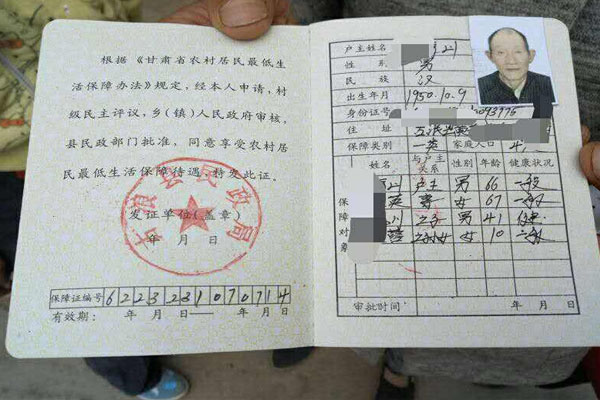 根据《甘肃省农村居民最低生
活保障办法》规定，经本人申请，村
级民主评议，乡(镇)人民政府审核，
县民政部门批准，同意享受农村居
民最低生活保障待遇，特发此证。
县民政局
发证单位(盖章)
年 月 日
保障证编号 6223231070714
有效期： 年 月 日—— 年 月 日
户主姓名
性 别 男
民 族 汉
出生年月 1950.10.9
身份证号
住 址
保障类别 一类 家庭人口 4
保障对象
姓名 与户主关系 性别 年龄 健康状况
户主 男 66 一般
妻 女 67 一般
之子 男 41
女 10
审批时间 年 月 日